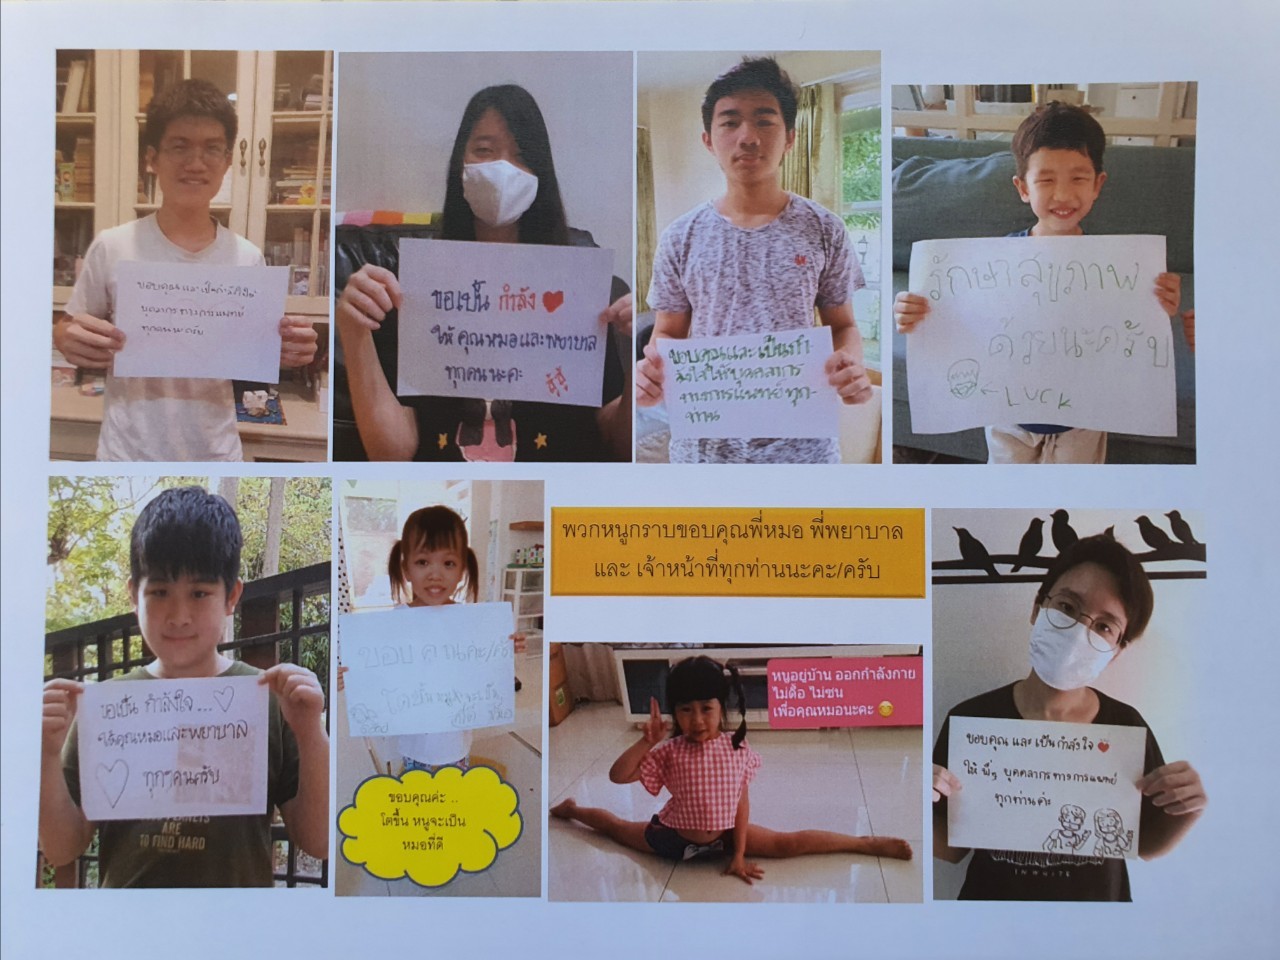 ขอบคุณและเป็นกำลังใจให้
บุคลากรทางการแพทย์
ทุกคนนะครับ
ขอเป็น กำลัง ❤
ให้คุณหมอและพยาบาล
ทุกคนนะคะ
สู้ๆ
ขอบคุณและเป็นกำ-
ลังใจให้บุคคลากร
ทางการแพทย์ทุก-
ท่าน
รักษาสุขภาพ
ด้วยนะครับ
← LUCK
ขอเป็น กำลังใจ...♡
ให้คุณหมอและพยาบาล
♡ ทุกๆคนครับ
ARE
TO FIND HARD
ขอบคุณค่ะ/ครับ
ขอบคุณค่ะ ..
โตขึ้น หนูจะเป็น
หมอที่ดี
พวกหนูกราบขอบคุณพี่หมอ พี่พยาบาล
และ เจ้าหน้าที่ทุกท่านนะคะ/ครับ
หนูอยู่บ้าน ออกกำลังกาย
ไม่ดื้อ ไม่ซน
เพื่อคุณหมอนะคะ 😊
ขอบคุณ และ เป็นกำลังใจ ❤
ให้ พี่ๆ บุคคลากรทางการแพทย์
ทุกท่านค่ะ
IN WHITE